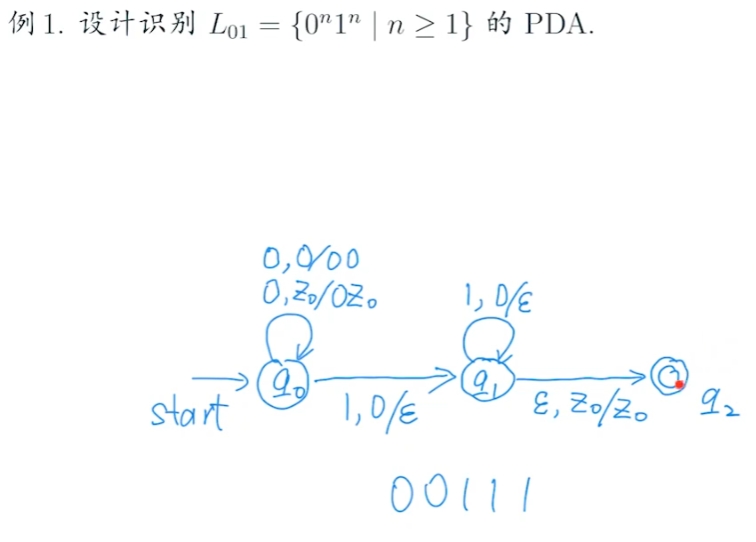 例 1. 设计识别 L₀₁ = {0ⁿ1ⁿ | n ≥ 1} 的 PDA.
0, 0/00
0, Z₀/0Z₀
1, 0/ε
start
q₀
1, 0/ε
q₁
ε, Z₀/Z₀
q₂
00111